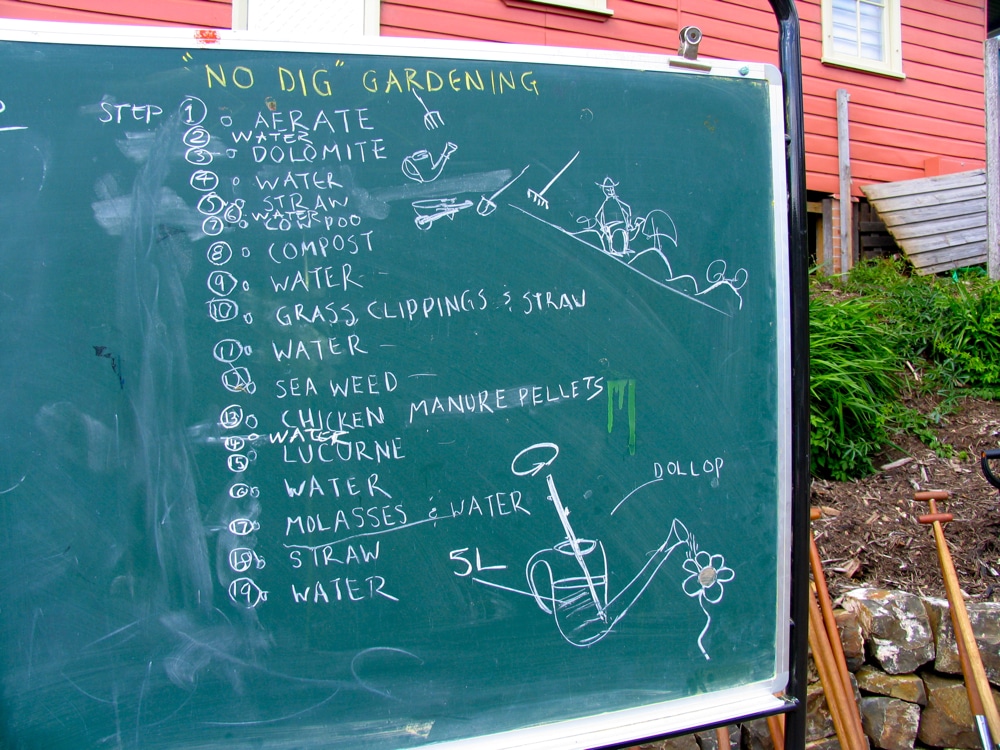 "NO DIG" GARDENING
STEP 1 AERATE
2 WATER
3 DOLOMITE
4 WATER
5 STRAW
6 WATER
7 COW POO
8 COMPOST
9 WATER
10 GRASS CLIPPINGS & STRAW
11 WATER
12 SEA WEED
13 CHICKEN MANURE PELLETS
14 WATER
15 LUCURNE
16 WATER
17 MOLASSES & WATER
18 STRAW
19 WATER
DOLLOP
5L